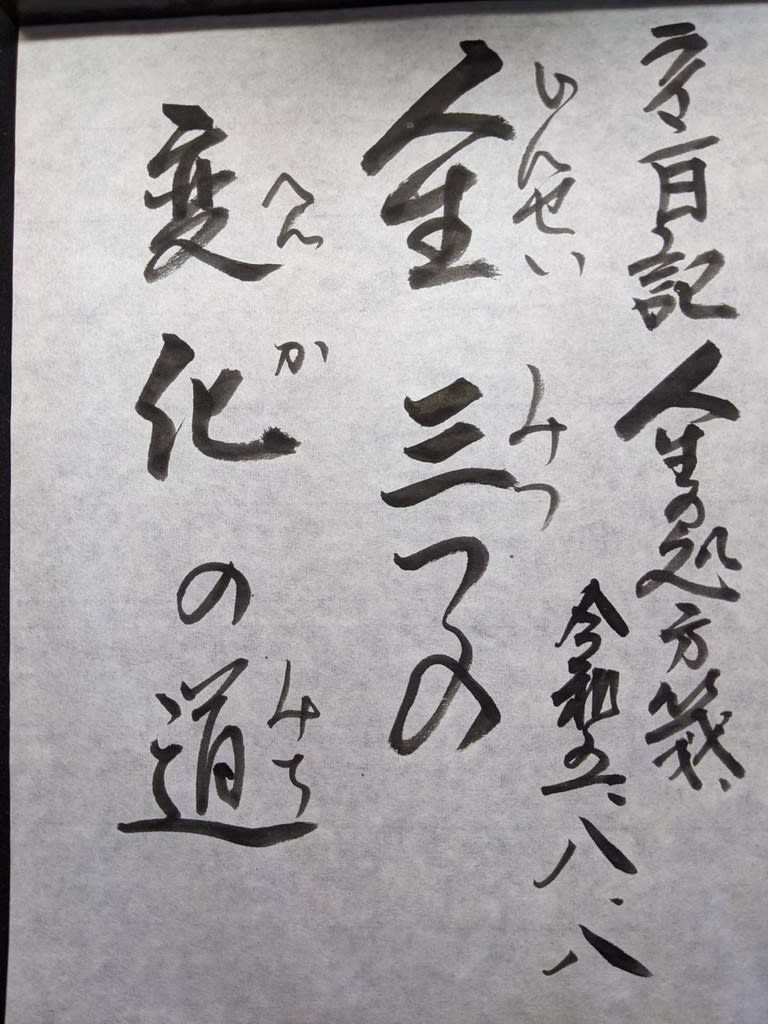 日記 人生の処方箋、
令和五、八、八
じんせい みつ
人生 三つの
へん か みち
変化の道